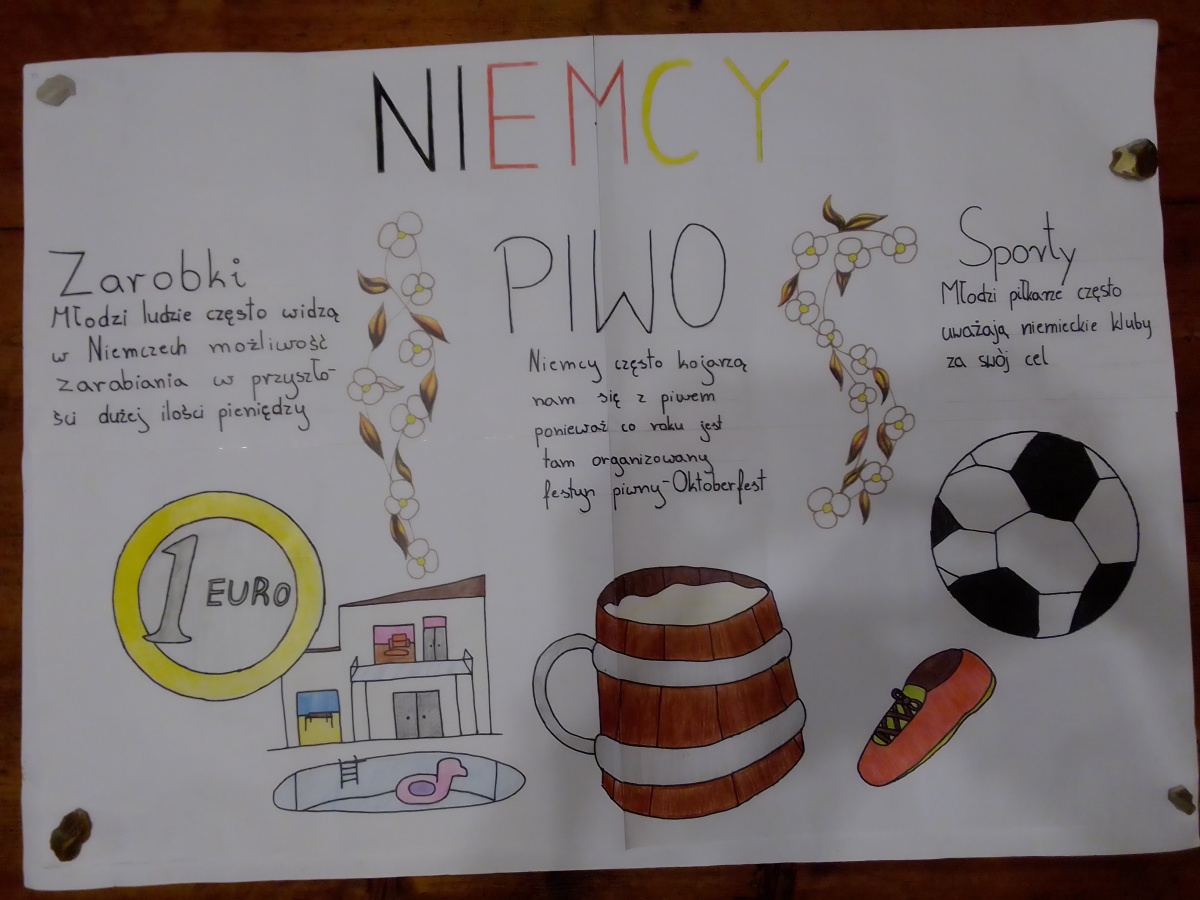 NIEMCY
Zarobki
Młodzi ludzie często widzą
w Niemczech możliwość
zarabiania w przyszło-
ści dużej ilości pieniędzy
1 EURO
PIWO
Niemcy często kojarzą
nam się z piwem
ponieważ co roku jest
tam organizowany
festyn piwny-Oktoberfest
Sporty
Młodzi piłkarze często
uważają niemieckie kluby
za swój cel